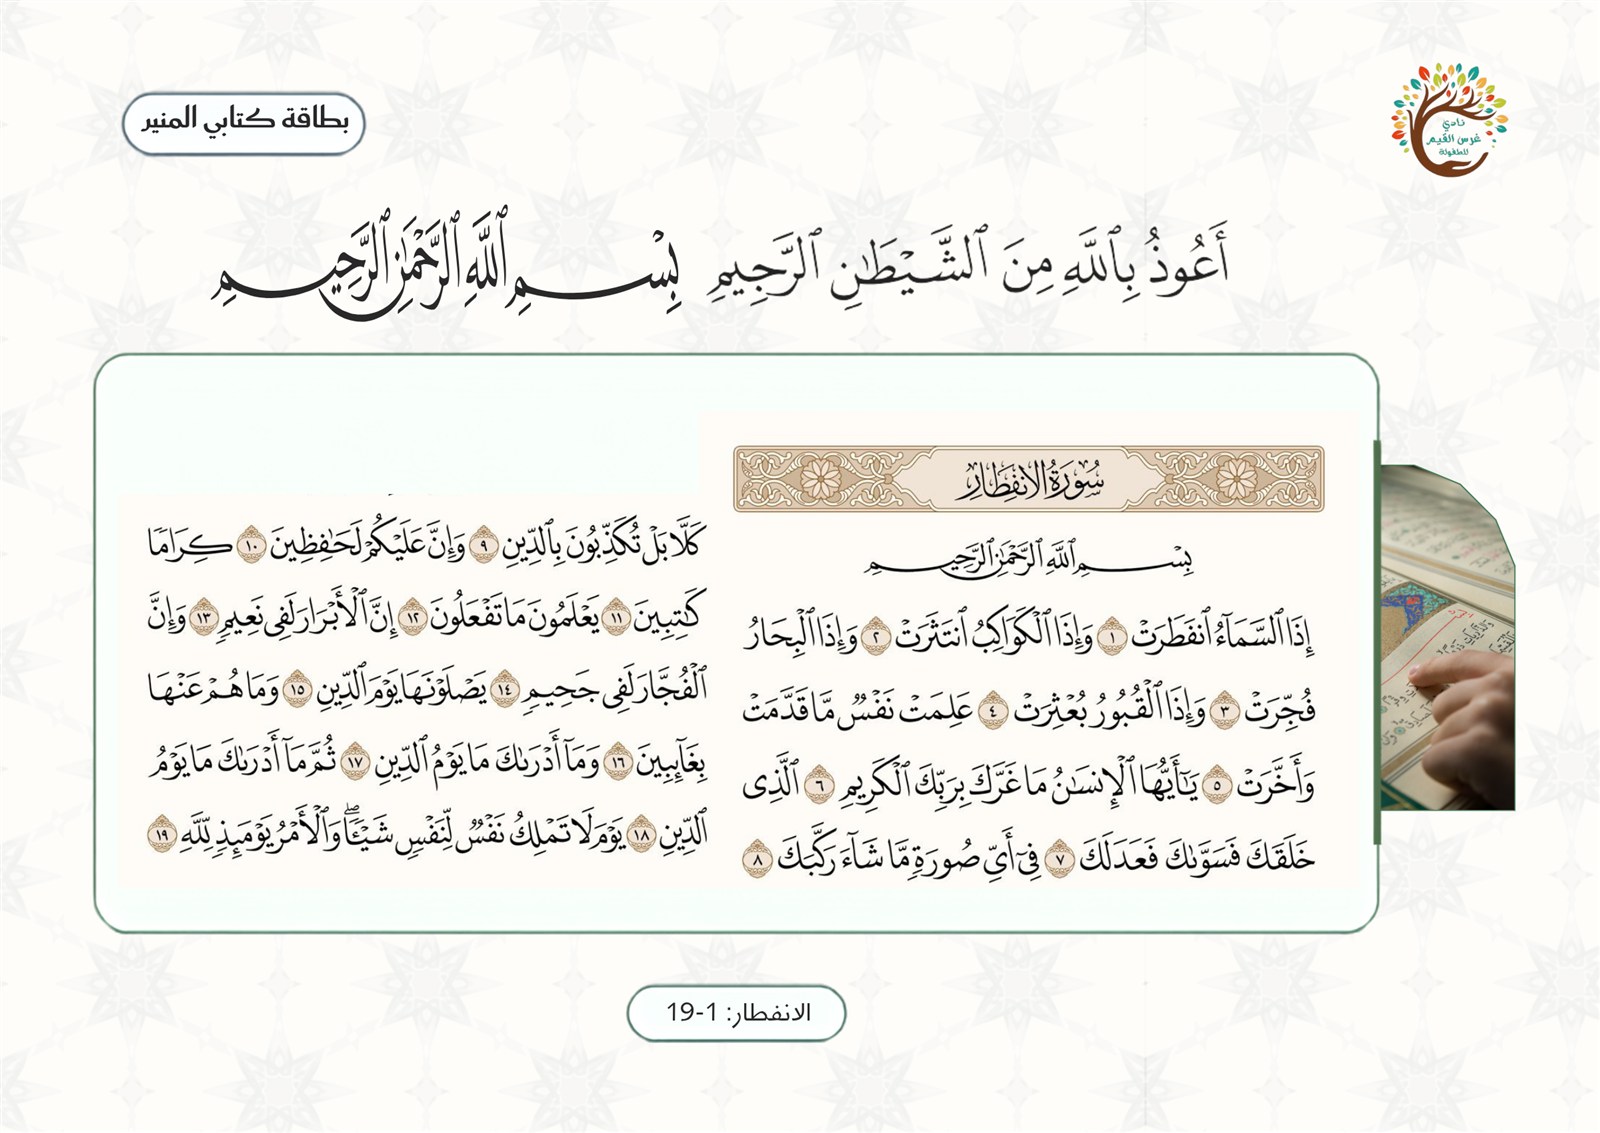 بطاقة كتابي المنير
نادي
غرس القيم
للطفولة
أَعُوذُ بِٱللَّهِ مِنَ ٱلشَّيْطَٰنِ ٱلرَّجِيمِ بِسْمِ ٱللَّهِ ٱلرَّحْمَٰنِ ٱلرَّحِيمِ
سُورَةُ الانفِطَارِ
بِسْمِ ٱللَّهِ ٱلرَّحْمَٰنِ ٱلرَّحِيمِ
إِذَا ٱلسَّمَآءُ ٱنفَطَرَتْ ١ وَإِذَا ٱلْكَوَاكِبُ ٱنتَثَرَتْ ٢ وَإِذَا ٱلْبِحَارُ
فُجِّرَتْ ٣ وَإِذَا ٱلْقُبُورُ بُعْثِرَتْ ٤ عَلِمَتْ نَفْسٌ مَّا قَدَّمَتْ
وَأَخَّرَتْ ٥ يَٰٓأَيُّهَا ٱلْإِنسَٰنُ مَا غَرَّكَ بِرَبِّكَ ٱلْكَرِيمِ ٦ ٱلَّذِى
خَلَقَكَ فَسَوَّىٰكَ فَعَدَلَكَ ٧ فِىٓ أَىِّ صُورَةٍ مَّا شَآءَ رَكَّبَكَ ٨
كَلَّا بَلْ تُكَذِّبُونَ بِٱلدِّينِ ٩ وَإِنَّ عَلَيْكُمْ لَحَٰفِظِينَ ١٠ كِرَامًا
كَٰتِبِينَ ١١ يَعْلَمُونَ مَا تَفْعَلُونَ ١٢ إِنَّ ٱلْأَبْرَارَ لَفِى نَعِيمٍ ١٣ وَإِنَّ
ٱلْفُجَّارَ لَفِى جَحِيمٍ ١٤ يَصْلَوْنَهَا يَوْمَ ٱلدِّينِ ١٥ وَمَا هُمْ عَنْهَا
بِغَآئِبِينَ ١٦ وَمَآ أَدْرَىٰكَ مَا يَوْمُ ٱلدِّينِ ١٧ ثُمَّ مَآ أَدْرَىٰكَ مَا يَوْمُ
ٱلدِّينِ ١٨ يَوْمَ لَا تَمْلِكُ نَفْسٌ لِّنَفْسٍ شَيْـًٔا ۖ وَٱلْأَمْرُ يَوْمَئِذٍ لِّلَّهِ ١٩
الانفطار: 1-19